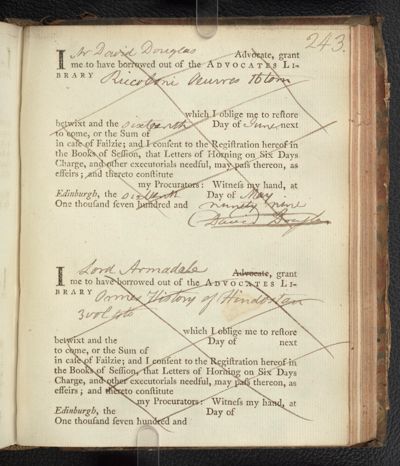 243.
I Mr David Douglas Advocate, grant
me to have borrowed out of the ADVOCATES LI-
BRARY Riccoboni Oeuvres 10 tom
which I oblige me to reſtore
betwixt and the sixteenth Day of June next
to come, or the Sum of
in caſe of Failzie; and I conſent to the Regiſtration hereof in
the Books of Seſſion, that Letters of Horning on Six Days
Charge, and other executorials needful, may paſs thereon, as
effeirs; and thereto conſtitute
my Procurators: Witneſs my hand, at
Edinburgh, the sixteenth Day of May
One thouſand ſeven hundred and ninety nine
David Douglas
I Lord Armadale Advocate, grant
me to have borrowed out of the ADVOCATES LI-
BRARY Ormes History of Hindostan
3 vol 4to
which I oblige me to reſtore
betwixt and the Day of next
to come, or the Sum of
in caſe of Failzie; and I conſent to the Regiſtration hereof in
the Books of Seſſion, that Letters of Horning on Six Days
Charge, and other executorials needful, may paſs thereon, as
effeirs; and thereto conſtitute
my Procurators: Witneſs my hand, at
Edinburgh, the Day of
One thouſand ſeven hundred and